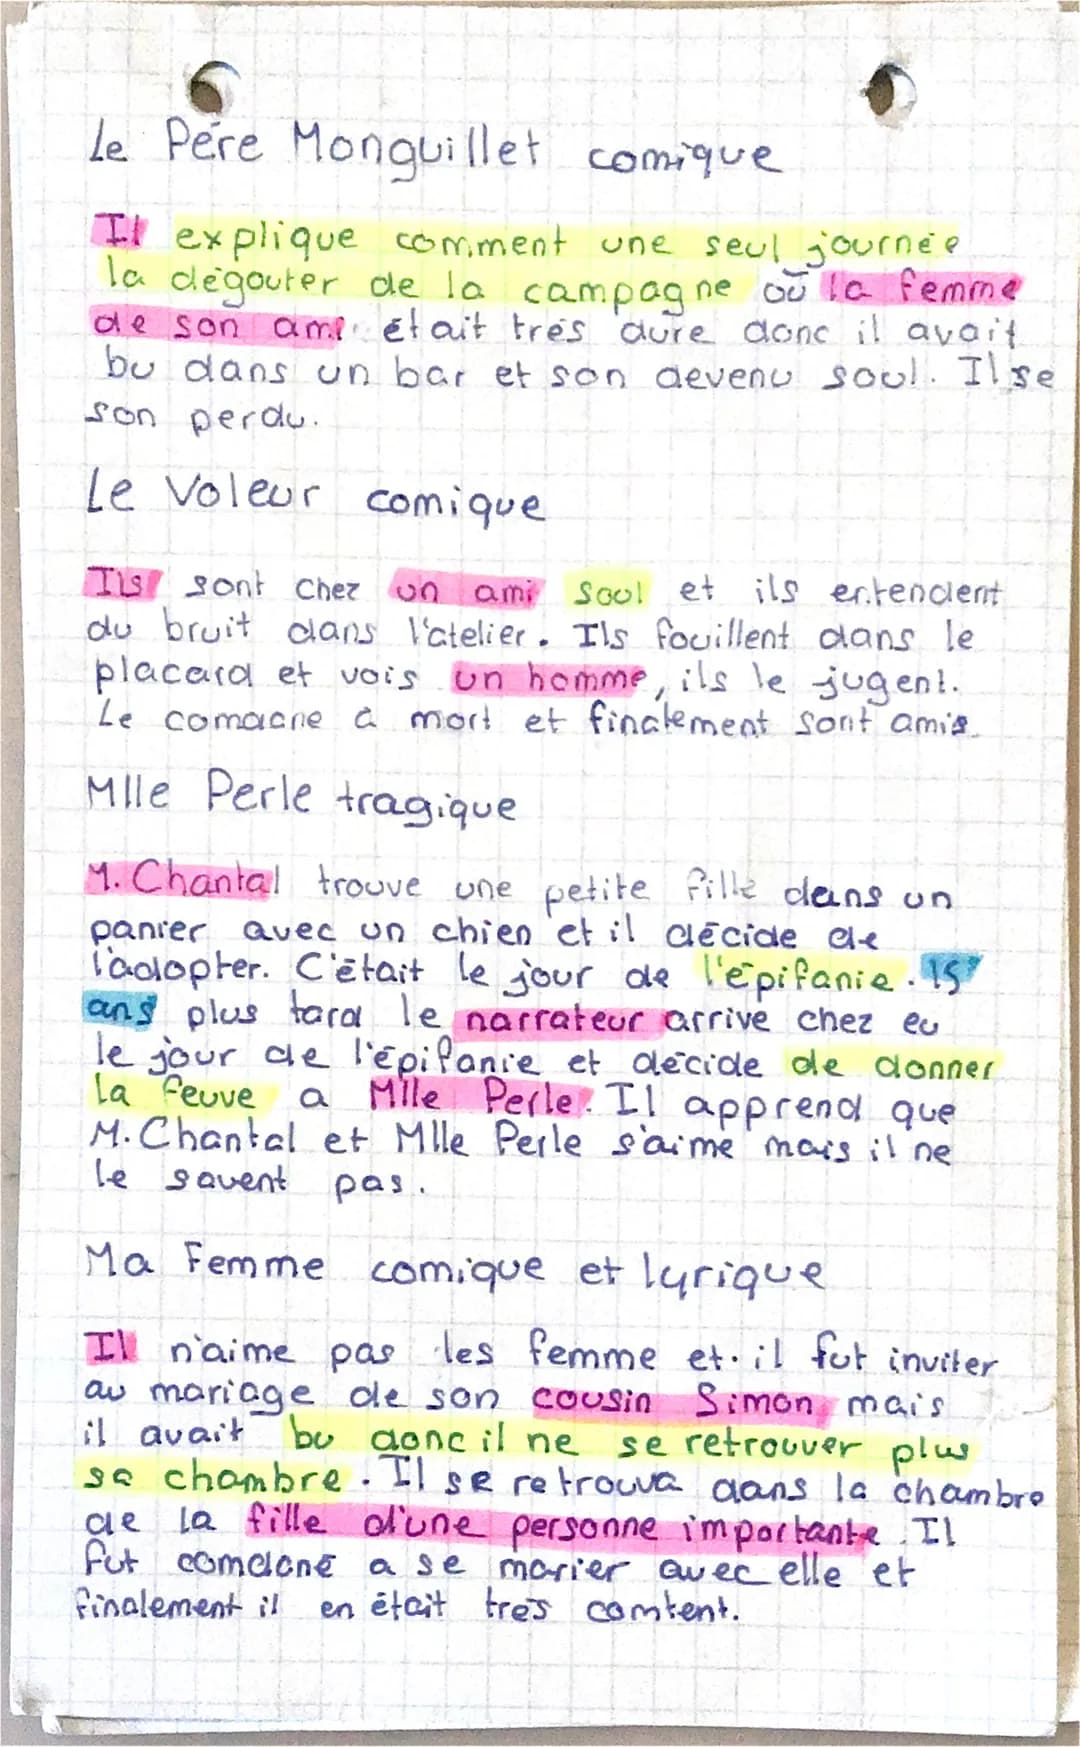 Le Père Monguillet comique
Il explique comment une seul journée
la dégouter de la campagne où la femme
de son ami était très dure donc il avait
bu dans un bar et son devenu soul. Il se
son perdu.
Le Voleur comique
Ils sont chez un ami soul et ils entendent
du bruit dans l'atelier. Ils fouillent dans le
placard et vois un homme, ils le jugent.
Le comdane a mort et finalement sont amis.
Mlle Perle tragique
M. Chantal trouve une petite fille dans un
panier avec un chien et il décide de
l'adopter. C'était le jour de l'épifanie. 15
ans plus tard le narrateur arrive chez eu
le jour de l'épifanie et décide de donner
la feuve a Mlle Perle. Il apprend que
M. Chantal et Mlle Perle s'aime mais il ne
le savent pas.
Ma Femme comique et lyrique
Il n'aime pas les femme et il fut inviter
au mariage de son cousin Simon mais
il avait bu donc il ne se retrouver plus
sa chambre. Il se retrouva dans la chambre
de la fille d'une personne importante. Il
fut comdané a se marier avec elle et
finalement il en était très comtent.